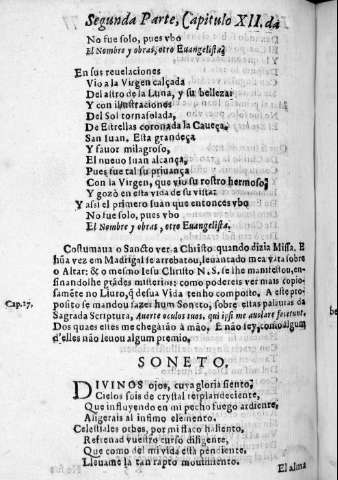 Segunda Parte, Capitulo XII. da
No fue solo, pues vbo
El Nombre y obras, otro Euangelista.
En sus reuelaciones
Vio a la Virgen calçada
Del astro de la Luna, y su bellezar
Y con illustraciones
Del Sol tornasolada,
De Estrellas coronada la Caueça,
San Iuan. Esta grandeça
Y fauor milagroso,
El nueuo Iuan alcança,
Pues fue tal su priuança
Con la Virgen, que vio su rostro hermoso;
Y gozò en esta vida de su vista:
Y assi el primero Iuan que entonces vbo
No fue solo, pues vbo
El Nombre y obras, otro Euangelista.
Costumaua o Sancto ver a Christo quando dizia Missa. E
hũa vez em Madrigal se arrebatou, leuantado mea vara sobre
o Altar: & o mesmo Iesu Christo N. S. se lhe manifestou, en-
sinandolhe grãdes misterios: como podereis ver mais copio-
samẽte no Liuro, q̃ desua Vida tenho composto. A este pro-
posito se mandou fazer hum Soneto, sobre estas palauras da
Cap. 27.
Sagrada Scriptura, Auerte oculos tuos, qui ipsi me auolare fecerunt.
Dos quaes elles me chegarão à mão. E não sey, como algum
d'elles não leuou algum premio.
SONETO.
DIVINOS ojos, cuya gloria siento,
Cielos sois de crystal resplandeciente,
Que influyendo en mi pecho fuego ardiente,
Aligerais al infimo elemento.
Celestiales orbes, por mi flaco
Refrenad vuestro curso diligente,
Que como del mi vida està pendiente,
Lleuame la tan rapto mouimiento.
El alma